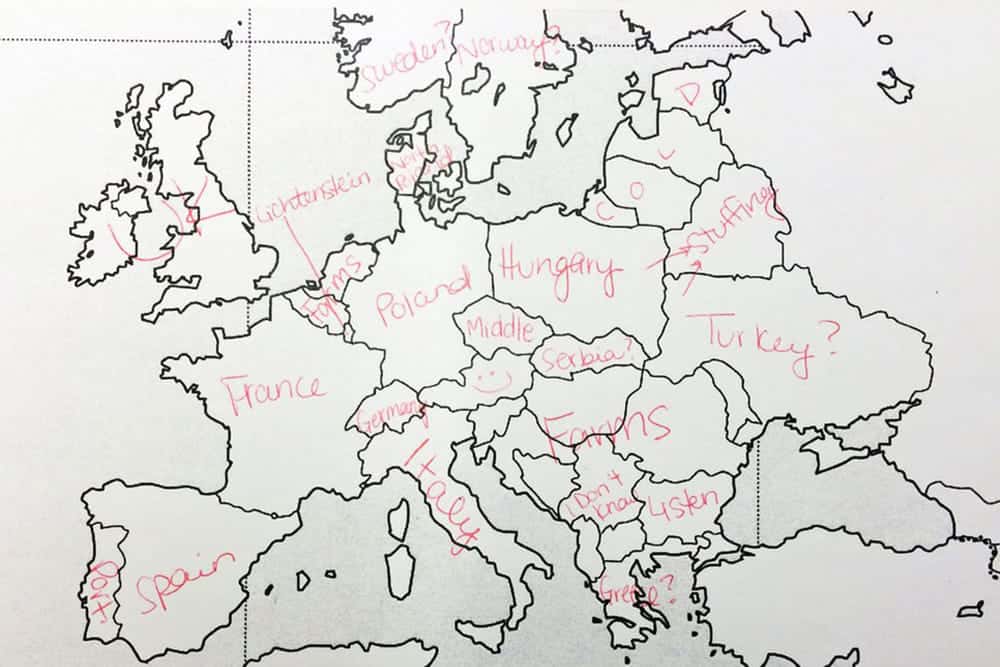 Sweden?
Norway?
D
Lichtenstein
C
O
Stuffing
Farms
Poland
Hungary
Middle
Serbia?
Turkey?
France
Germany
Farms
Italy
I Don't
know
Listen
Spain
Port
Greece?